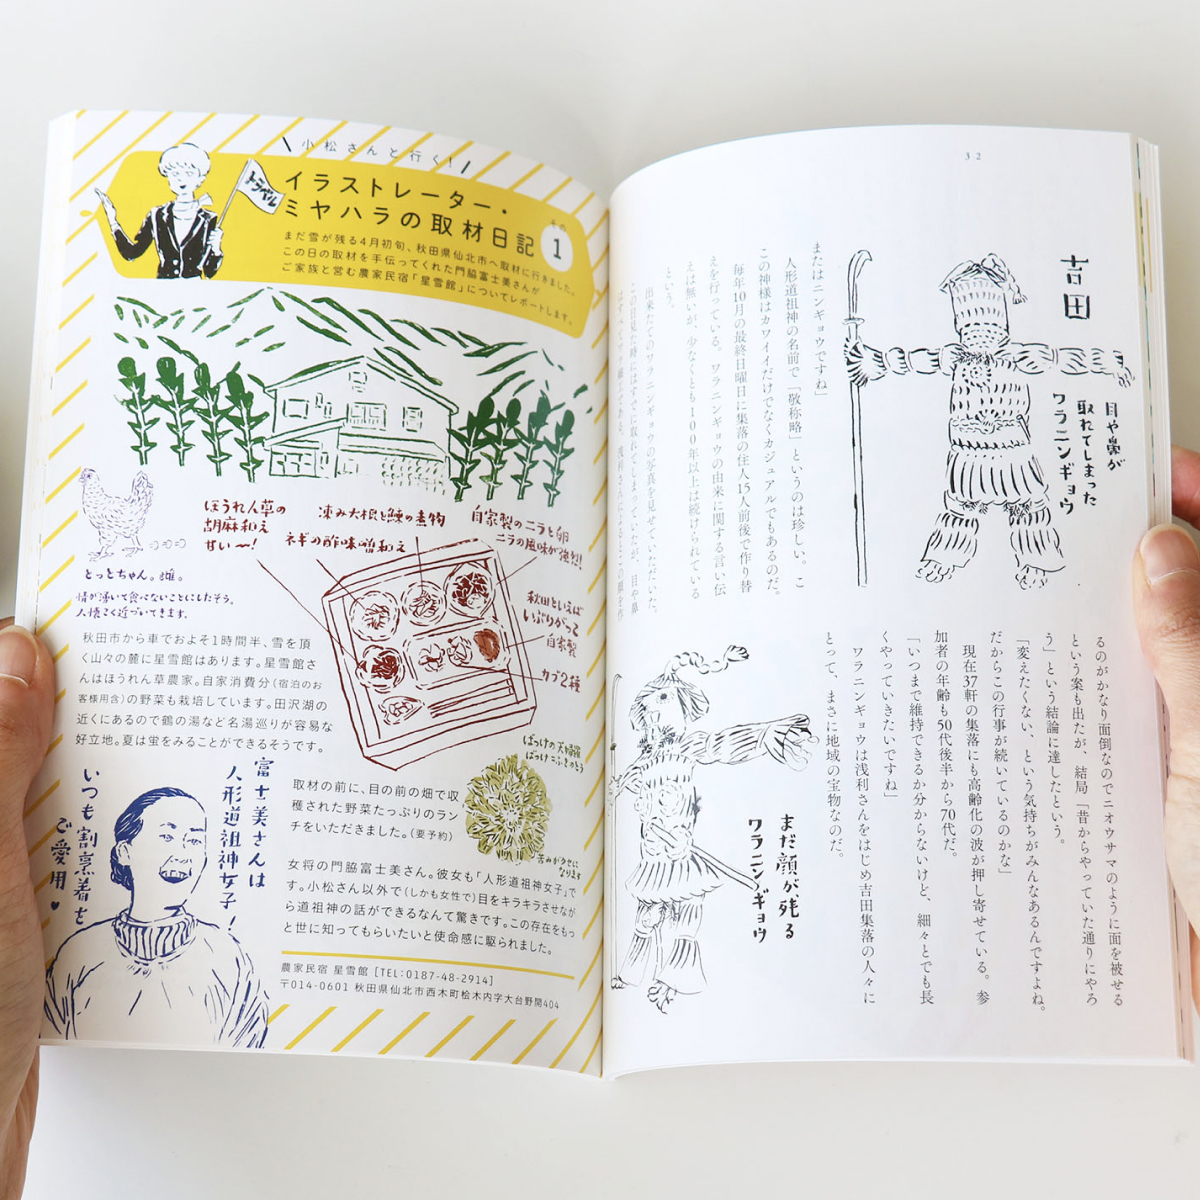 小松さんと行く!
トラベル
イラストレーター・
ミヤハラの取材日記
その
1
まだ雪が残る4月初旬、秋田県仙北市へ取材に行きました。
この日の取材を手伝ってくれた門脇富士美さんが
ご家族と営む農家民宿「星雪館」についてレポートします。
ほうれん草の
胡麻和え
甘い〜!
凍み大根と鰊の煮物
ネギの酢味噌和え
自家製のニラと卵
ニラの風味が強烈!
秋田といえば
いぶりがっこ
自家製
カブ2種
とっとちゃん。雄。
情が湧いて食べないことにしたそう。
人懐こく近づいてきます。
秋田市から車でおよそ1時間半、雪を頂
く山々の麓に星雪館はあります。星雪館さ
んはほうれん草農家。自家消費分(宿泊のお
客様用含)の野菜も栽培しています。田沢湖の
近くにあるので鶴の湯など名湯巡りが容易な
好立地。夏は蛍をみることができるそうです。
ばっけの天婦羅
ばっけこふきのとう
苦みがクセに
なります
取材の前に、目の前の畑で収
穫された野菜たっぷりのラン
チをいただきました。(要予約)
富士美さんは
人形道祖神女子!
いつも割烹着を
ご愛用♥
女将の門脇富士美さん。彼女も「人形道祖神女子」で
す。小松さん以外で(しかも女性で)目をキラキラさせなが
ら道祖神の話ができるなんて驚きです。この存在をもっ
と世に知ってもらいたいと使命感に駆られました。
農家民宿 星雪館 [TEL:0187-48-2914]
〒014-0601 秋田県仙北市西木町桧木内字大台野開404
32
吉田
目や鼻が
取れてしまった
ワラニンギョウ
またはニンギョウですね」
人形道祖神の名前で「敬称略」というのは珍しい。こ
の神様はカワイイだけでなくカジュアルでもあるのだ。
毎年10月の最終日曜日に集落の住人15人前後で作り替
えを行っている。ワラニンギョウの由来に関する言い伝
えは無いが、少なくとも100年以上は続けられている
という。
出来たてのワラニンギョウの写真を見せていただいた。
この日見た時にはすでに取れてしまっていたが、目や鼻
まだ顔が残る
ワラニンギョウ
るのがかなり面倒なのでニオウサマのように面を被せる
という案も出たが、結局「昔からやっていた通りにやろ
う」という結論に達したという。
「変えたくない、という気持ちがみんなあるんですよね。
だからこの行事が続いているのかな」
現在37軒の集落にも高齢化の波が押し寄せている。参
加者の年齢も50代後半から70代だ。
「いつまで維持できるか分からないけど、細々とでも長
くやっていきたいですね」
ワラニンギョウは浅利さんをはじめ吉田集落の人々に
とって、まさに地域の宝物なのだ。